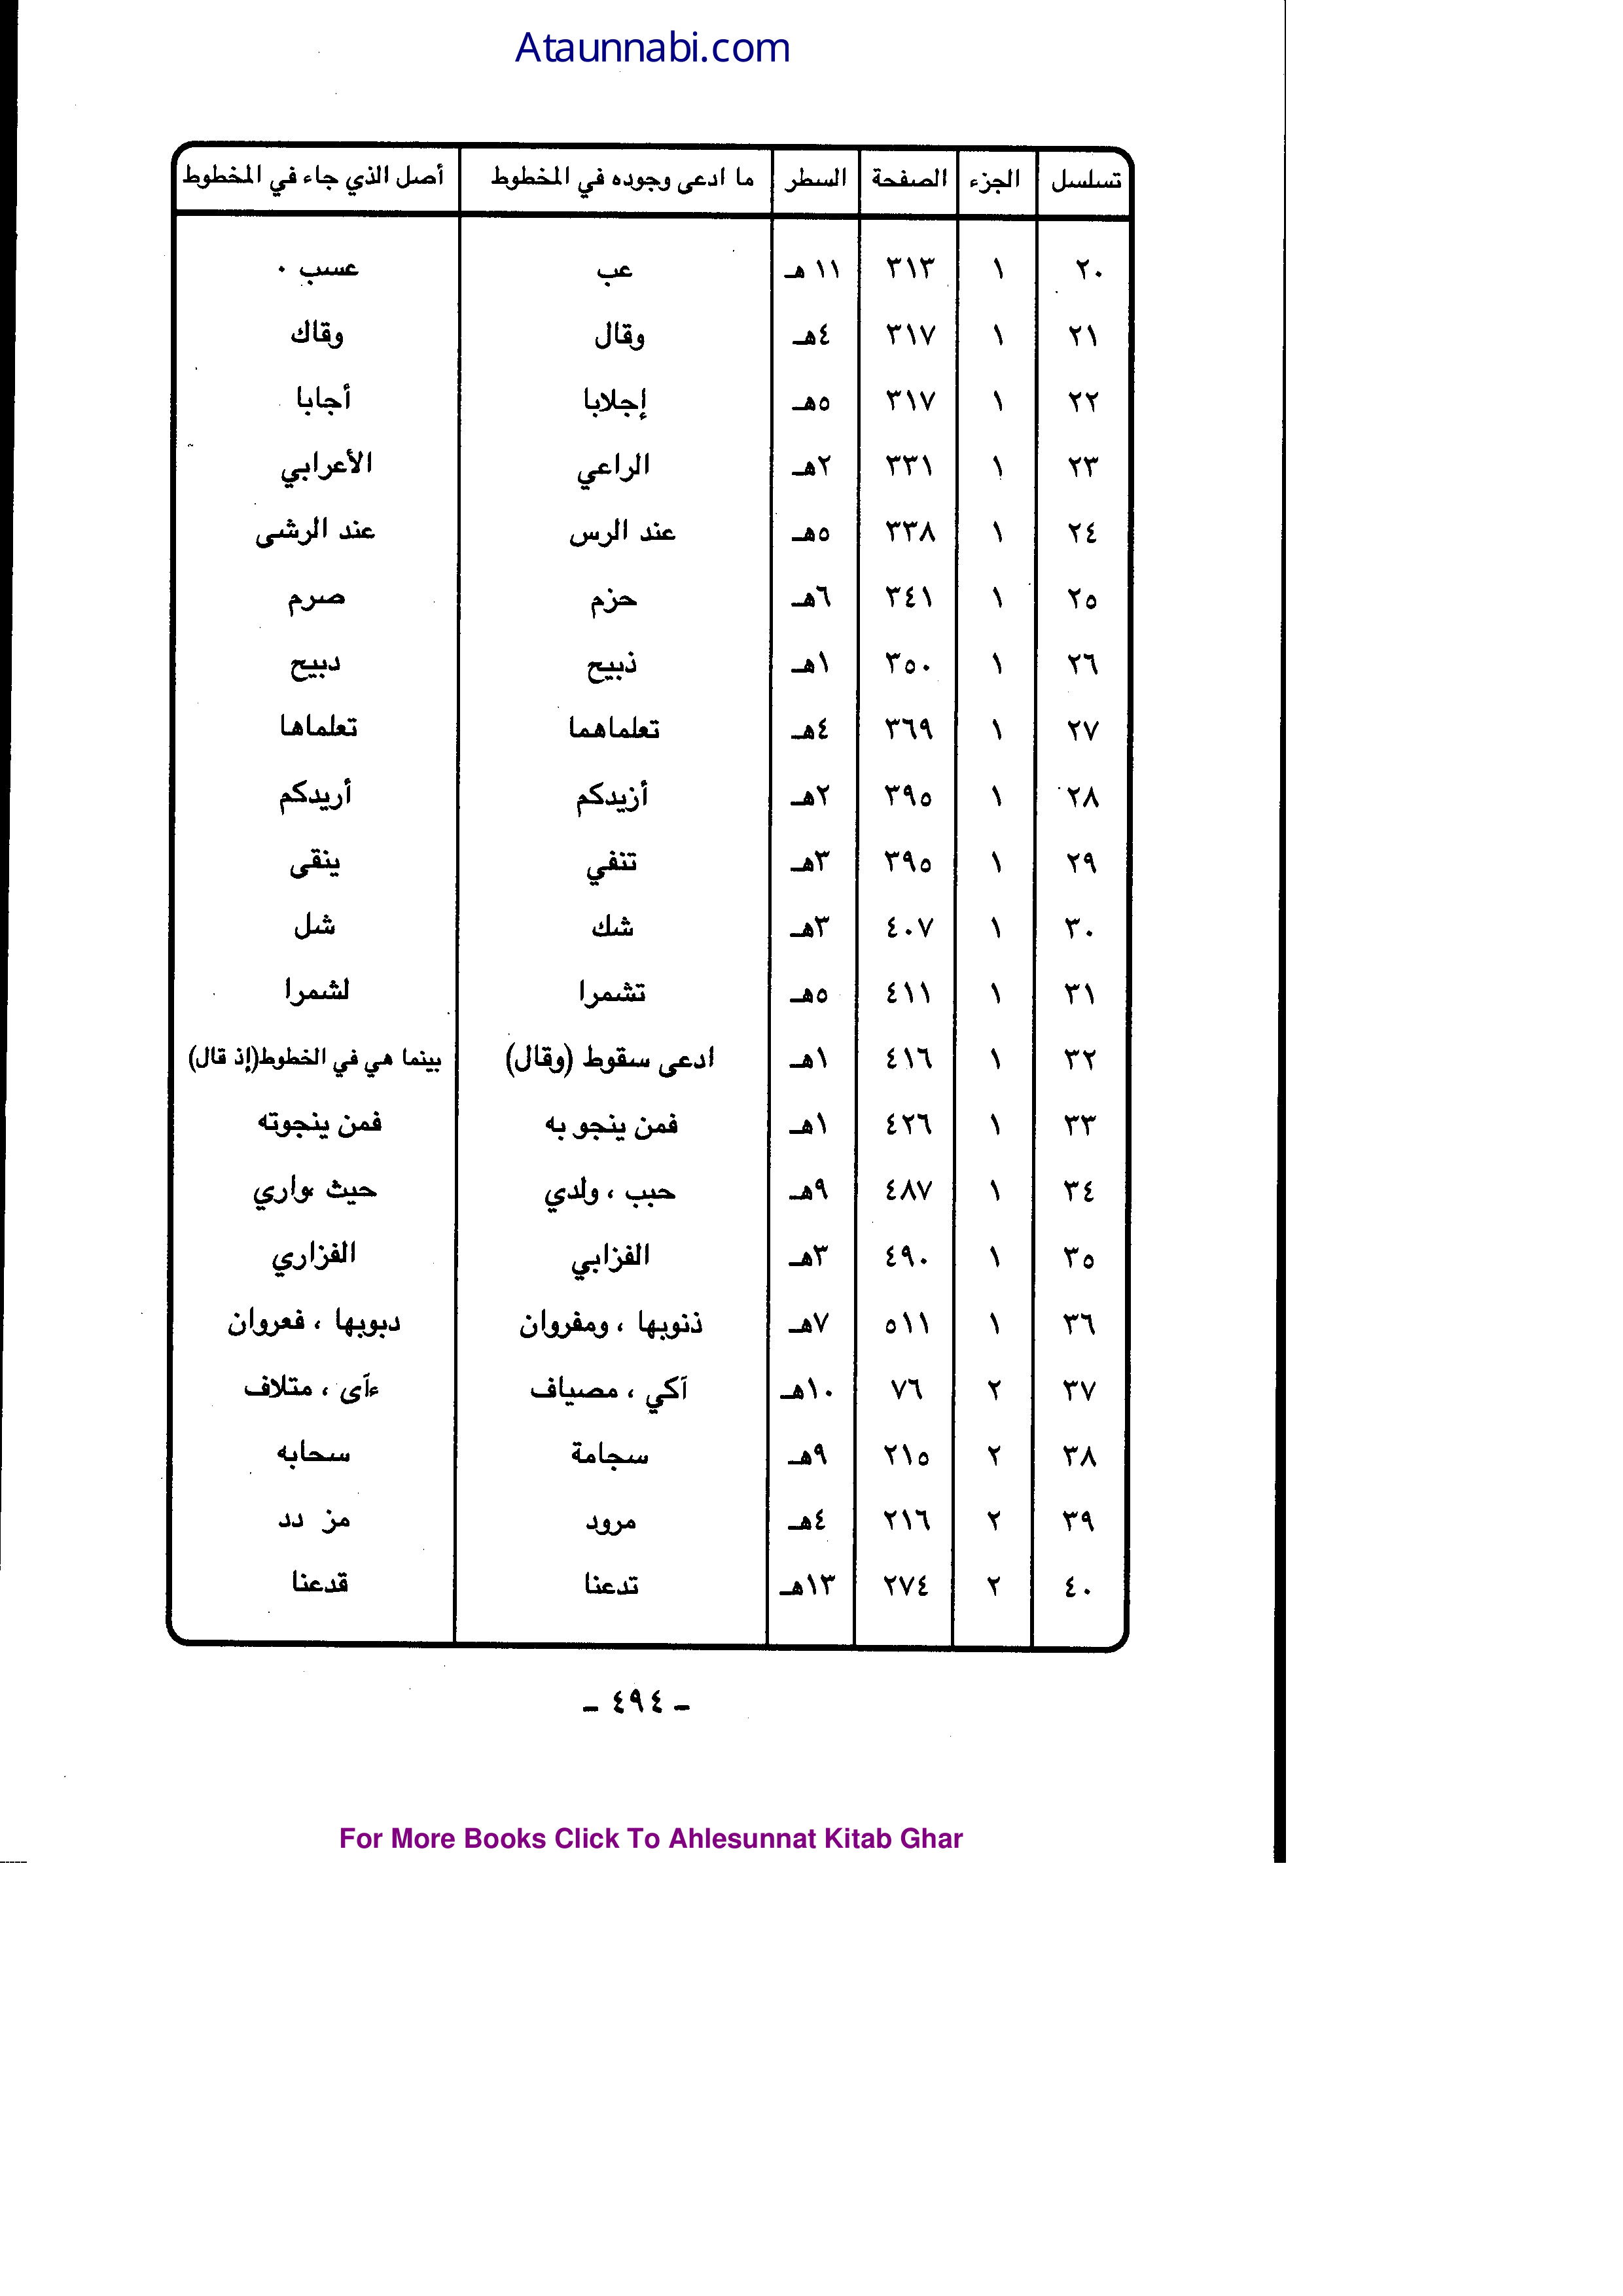 Ataunnabi.com
تسلسل الجزء الصفحة السطر ما ادعى وجوده في المخطوط أصل الذي جاء في المخطوط
٢٠ ١ ٣١٣ ١١ هـ عب عسب ٠
٢١ ١ ٣١٧ ٤هـ وقال وقاك
٢٢ ١ ٣١٧ ٥هـ إجلابا أجابا
٢٣ ١ ٣٣١ ٢هـ الراعي الأعرابي
٢٤ ١ ٣٣٨ ٥هـ عند الرس عند الرشى
٢٥ ١ ٣٤١ ٦هـ حزم صرم
٢٦ ١ ٣٥٠ ١هـ ذبيح دبيح
٢٧ ١ ٣٦٩ ٤هـ تعلماهما تعلماها
٢٨ ١ ٣٩٥ ٢هـ أزيدكم أريدكم
٢٩ ١ ٣٩٥ ٣هـ تنفي ينقى
٣٠ ١ ٤٠٧ ٣هـ شك شل
٣١ ١ ٤١١ ٥هـ تشمرا لشمرا
٣٢ ١ ٤١٦ ١هـ ادعى سقوط (وقال) بينما هي في الخطوط(إذ قال)
٣٣ ١ ٤٢٦ ١هـ فمن ينجو به فمن ينجوته
٣٤ ١ ٤٨٧ ٩هـ حبب ، ولدي حيث واري
٣٥ ١ ٤٩٠ ٣هـ الفزابي الفزاري
٣٦ ١ ٥١١ ٧هـ ذنوبها ، ومفروان دبوبها ، فعروان
٣٧ ٢ ٧٦ ١٠هـ آكي ، مصياف ءآى ، متلاف
٣٨ ٢ ٢١٥ ٩هـ سجامة سحابه
٣٩ ٢ ٢١٦ ٤هـ مرود مز دد
٤٠ ٢ ٢٧٤ ١٣هـ تدعنا قدعنا
- ٤٩٤ -
For More Books Click To Ahlesunnat Kitab Ghar